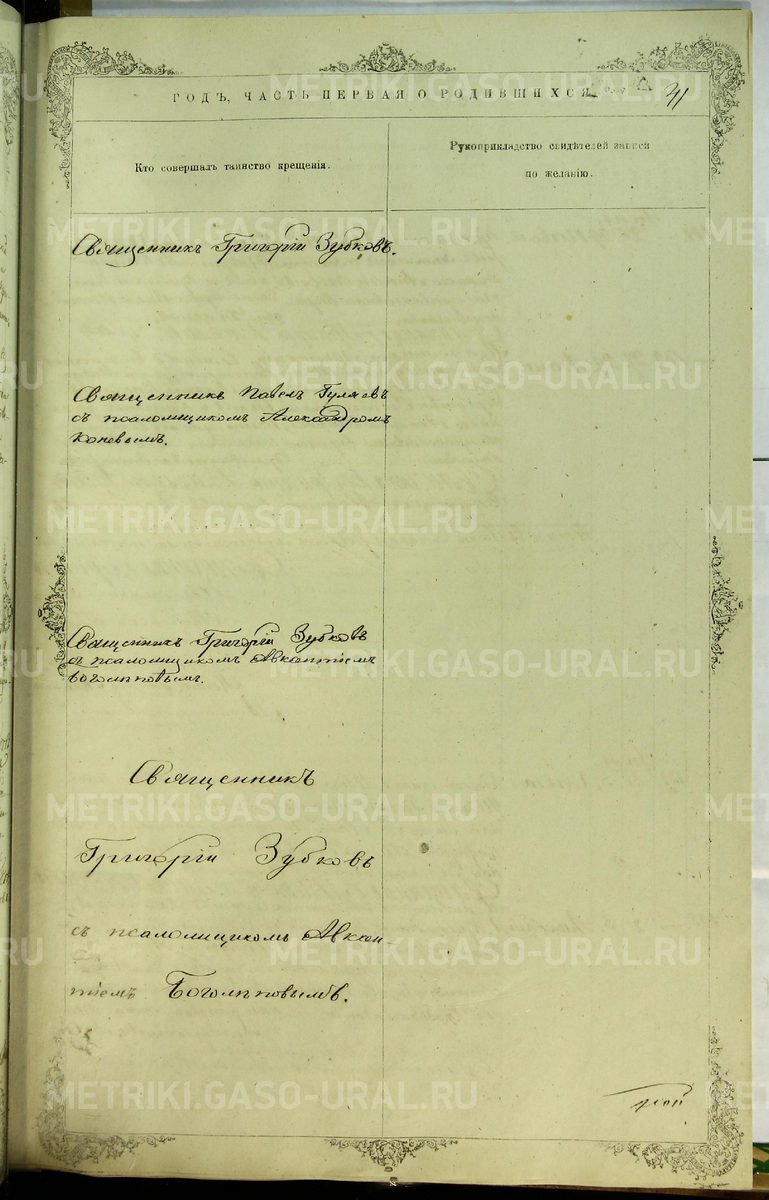 ГОДЪ, ЧАСТЬ ПЕРВАЯ О РОДИВШИХСЯ
Кто совершалъ таинство крещенія.
Рукоприкладство свидѣтелей записи
по желанію.
Священникъ Григорій Зубковъ.
Священникъ Павелъ Гуляевъ
съ псаломщикомъ Александромъ
Коневымъ.
Священникъ Григорій Зубковъ
съ псаломщикомъ Авксентіемъ
Боголѣповымъ.
Священникъ
Григорій Зубковъ
съ псаломщикомъ Авксен-
тіемъ Боголѣповымъ.
METRIKI.GASO-URAL.RU